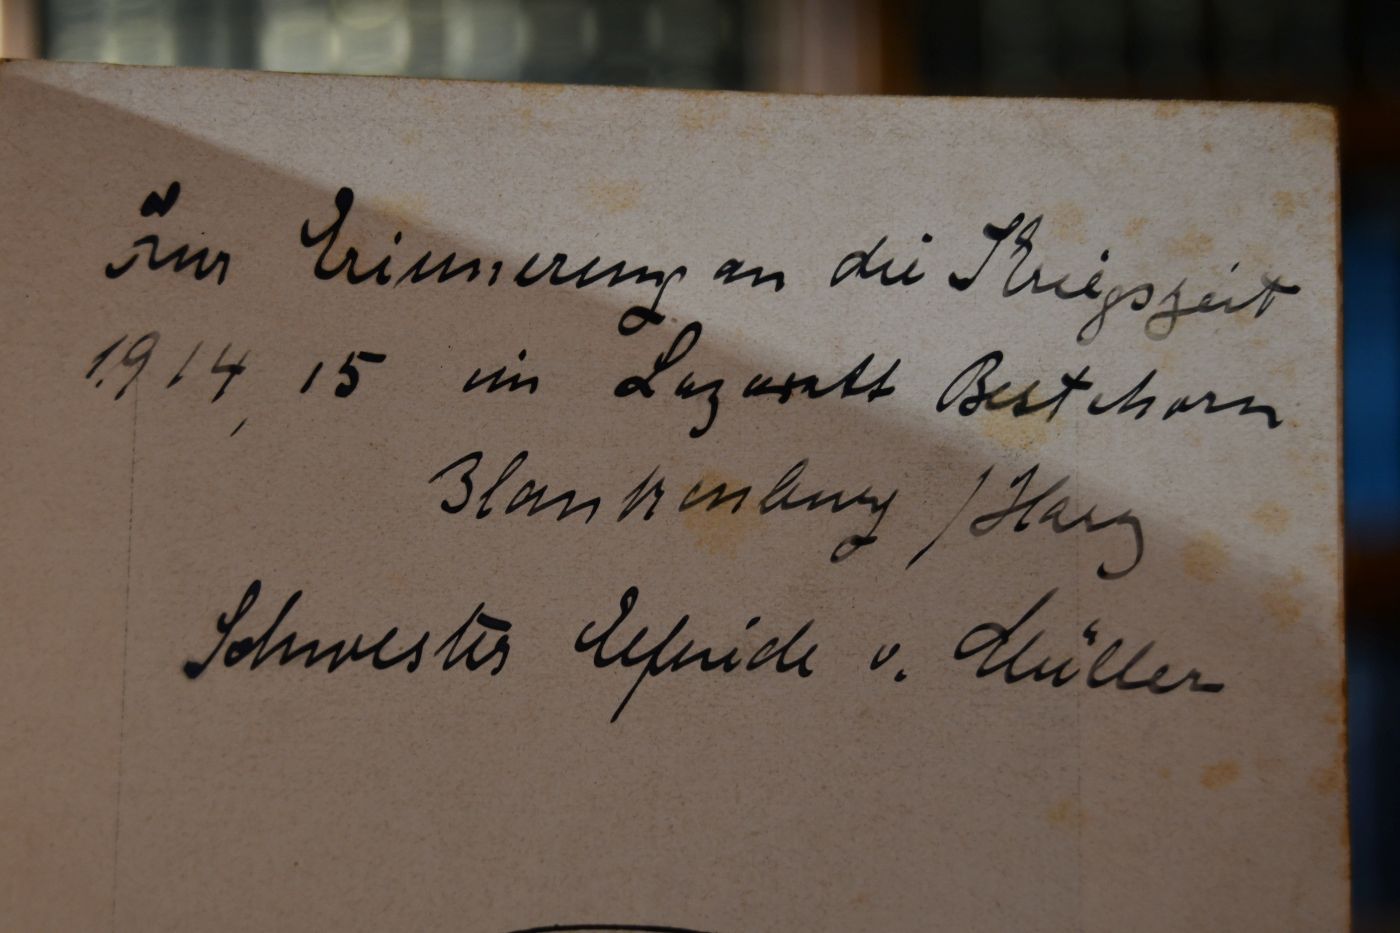 Zur Erinnerung an die Kriegszeit
1914, 15 im Lazarett Bestehorn
Blankenburg / Harz
Schwester Elfriede v. Müller